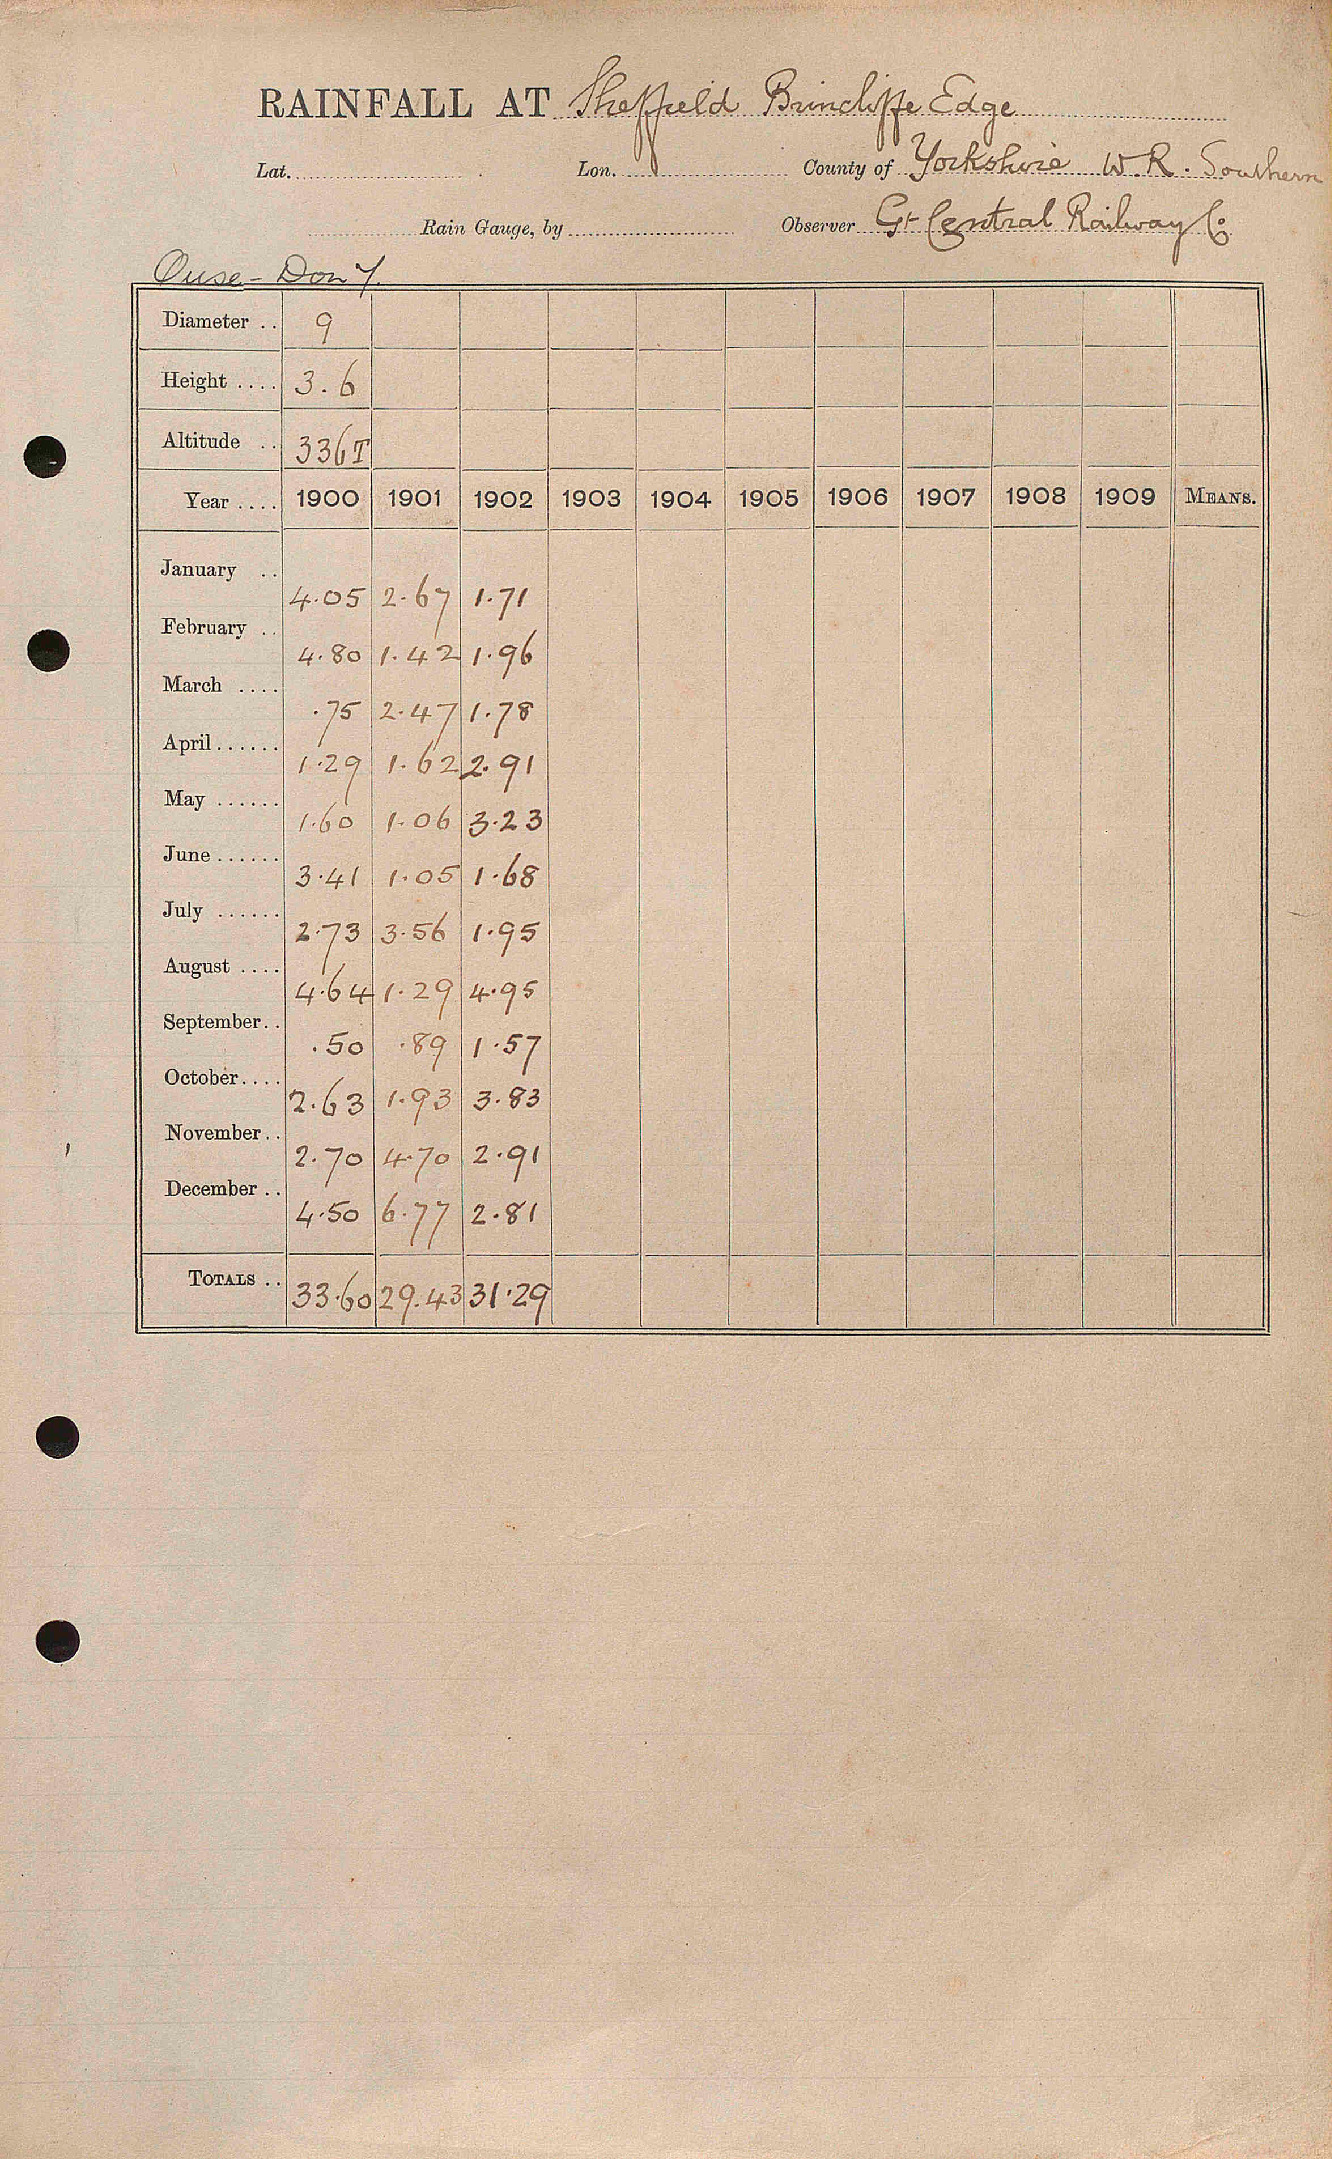 RAINFALL AT Sheffield Brincliffe Edge
Lat. Lon. County of Yorkshire W.R. Southern
Rain Gauge, by Observer Gt Central Railway Co
Ouse - Don 7.
Diameter .. 9
Height .... 3.6
Altitude .. 336T
Year .... 1900 1901 1902 1903 1904 1905 1906 1907 1908 1909 MEANS.
January .. 4.05 2.67 1.71
February .. 4.80 1.42 1.96
March .... .75 2.47 1.78
April ...... 1.29 1.62 2.91
May ...... 1.60 1.06 3.23
June ...... 3.41 1.05 1.68
July ...... 2.73 3.56 1.95
August .... 4.64 1.29 4.95
September.. .50 .89 1.57
October.... 2.63 1.93 3.83
November.. 2.70 4.70 2.91
December .. 4.50 6.77 2.81
TOTALS .. 33.60 29.43 31.29